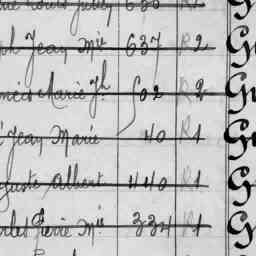 Louis Jules 630
ph Jean Mie 637 R2 G
ncois Marie Jh 502 R2 G
Jean Marie 40 R1 G
guste Albert 440 R1 G
rles Pierre Mie 334 R1 G